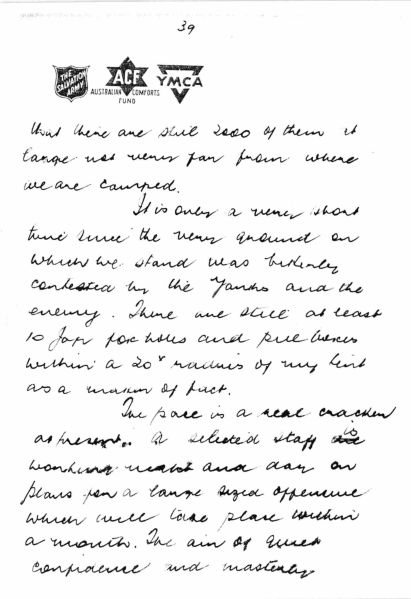 39
THE SALVATION ARMY
ACF
AUSTRALIAN COMFORTS FUND
YMCA
that there are still 2000 of them at
large not very far from where
we are camped.
It is only a very short
time since the very ground on
which we stand was bitterly
contested by the Yanks and the
enemy. There are still at least
10 Jap fox holes and pill boxes
within a 20ˣ radius of my tent
as a matter of fact.
The pace is a real cracker
at present. A selected staff is
working night and day on
plans for a large sized offensive
which will take place within
a month. The air of quiet
confidence and masterly